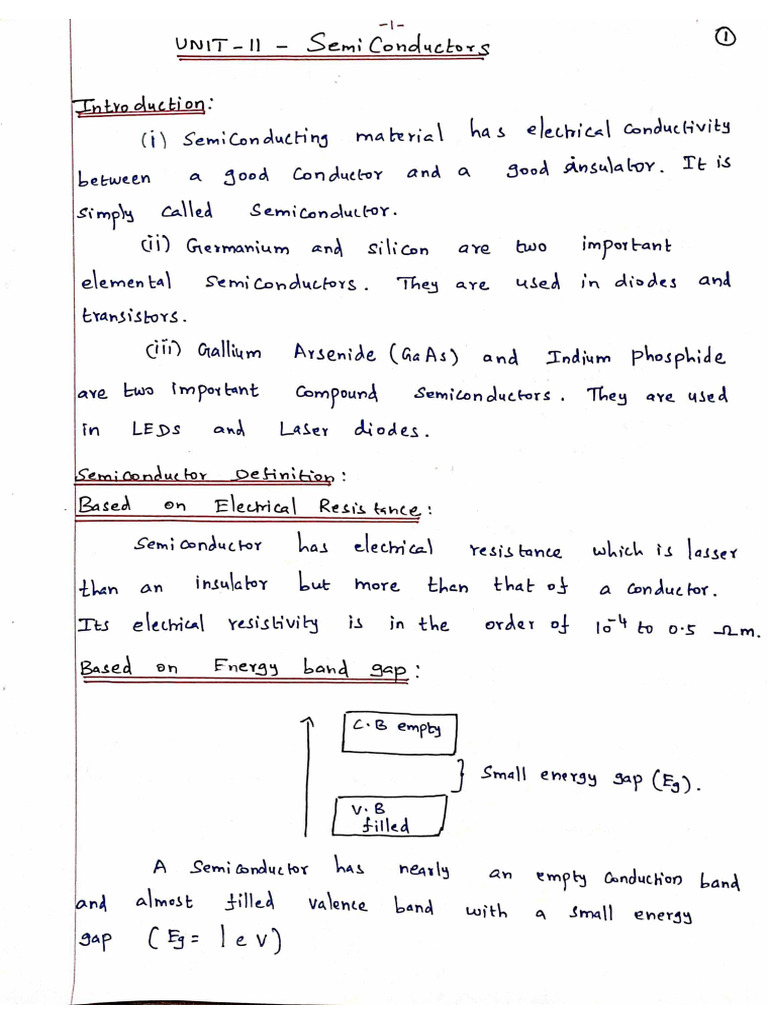 -1-
UNIT-II - SemiConductors
①
Introduction:
(i) SemiConducting material has electrical conductivity
between a good Conductor and a good insulator. It is
simply called Semiconductor.
(ii) Germanium and silicon are two important
elemental SemiConductors. They are used in diodes and
transistors.
(iii) Gallium Arsenide (GaAs) and Indium Phosphide
are two important Compound Semiconductors. They are used
in LEDs and Laser diodes.
Semiconductor Definition:
Based on Electrical Resistance:
Semiconductor has electrical resistance which is lasser
than an insulator but more than that of a conductor.
Its electrical resistivity is in the order of 10⁻⁴ to 0.5 Ωm.
Based on Energy band gap:
C.B empty
Small energy gap (Eg).
V.B
filled
A Semiconductor has nearly an empty Conduction band
and almost filled valence band with a small energy
gap (Eg = 1 e v)